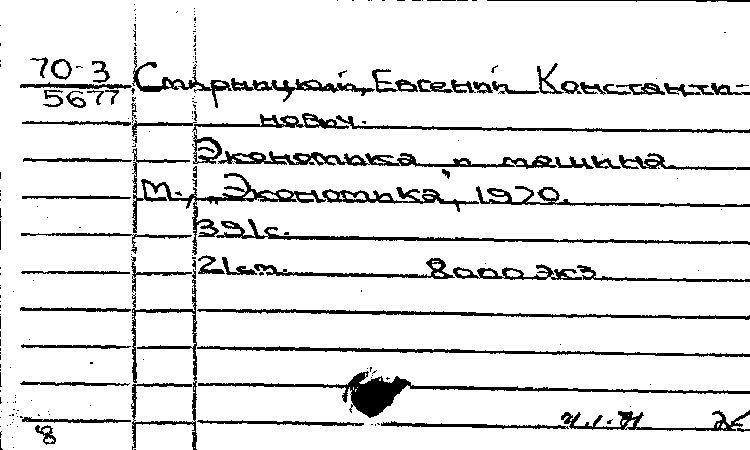 70-3
5677
Старицкий, Евгений Константи-
нович.
Экономика и машина.
М., „Экономика“, 1970.
391 с.
21 см. 8000 экз.
8